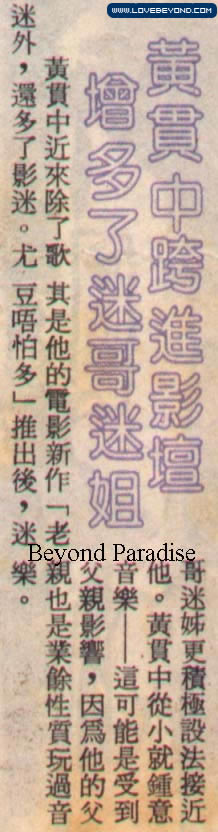 WWW.LOVEBEYOND.COM
黃貫中跨進影壇
增多了迷哥迷姐
黃貫中近來除了歌
迷外，還多了影迷。尤
其是他的電影新作「老
豆唔怕多」推出後，迷
哥迷姊更積極設法接近
他。黃貫中從小就鍾意
音樂——這可能是受到
父親影響，因爲他的父
親也是業餘性質玩過音
樂。
Beyond Paradise